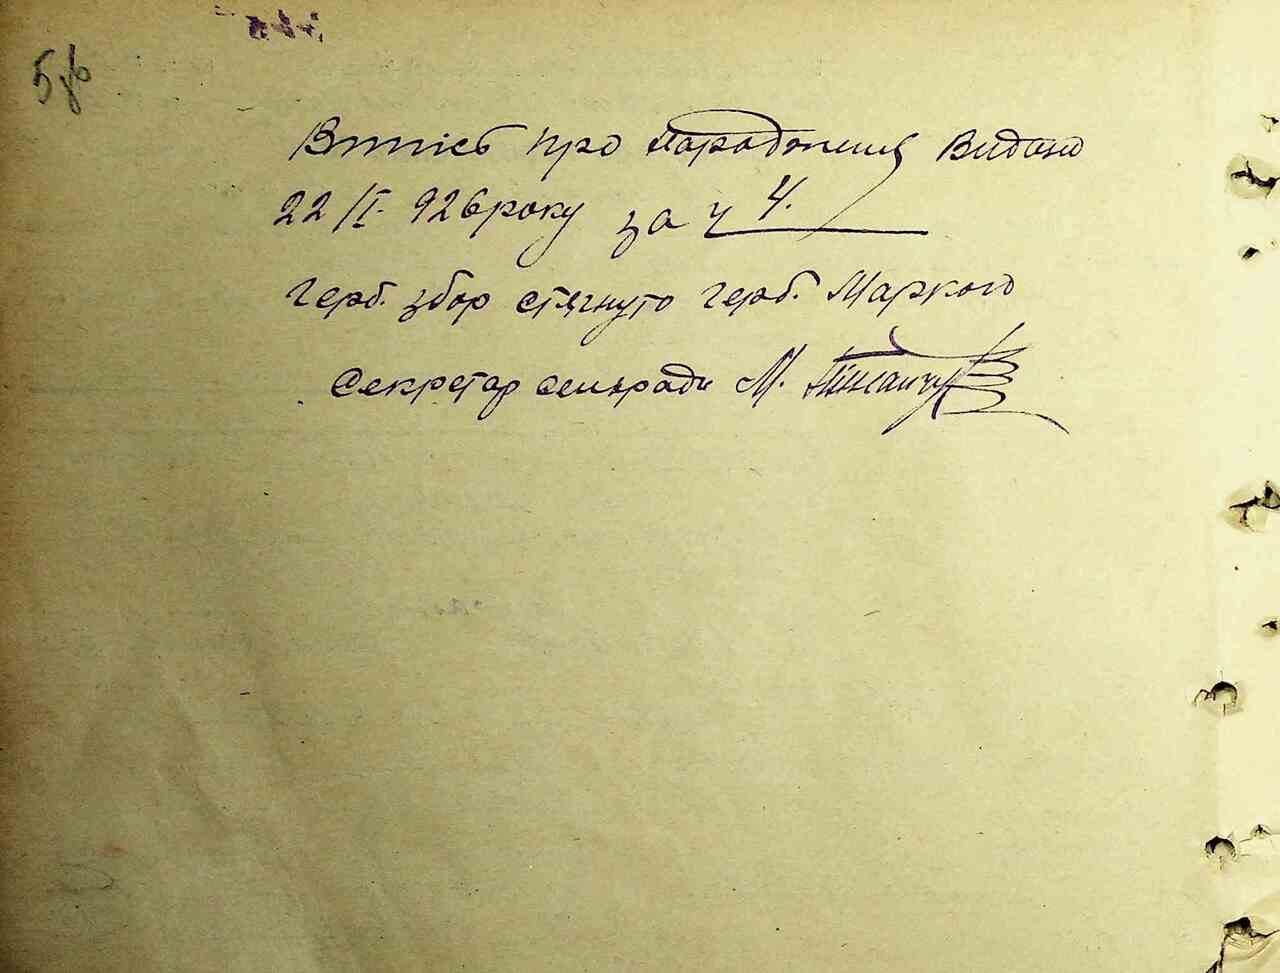 5
Випись про народження Видано
22/I. 926 року за ч 4.
Герб. збор стягнуто герб. Маркою
Секретар сельради М.